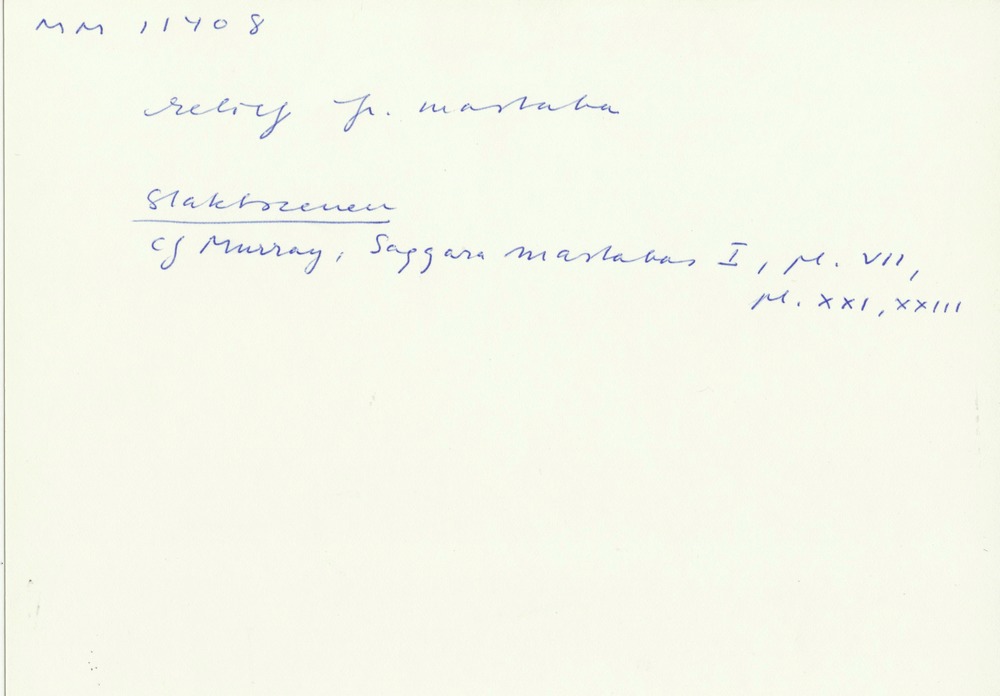 MM 11408
relief fr. mastaba
Slaktscenen
cf Murray, Saqqara mastabas I, pl. VII,
pl. XXI, XXIII